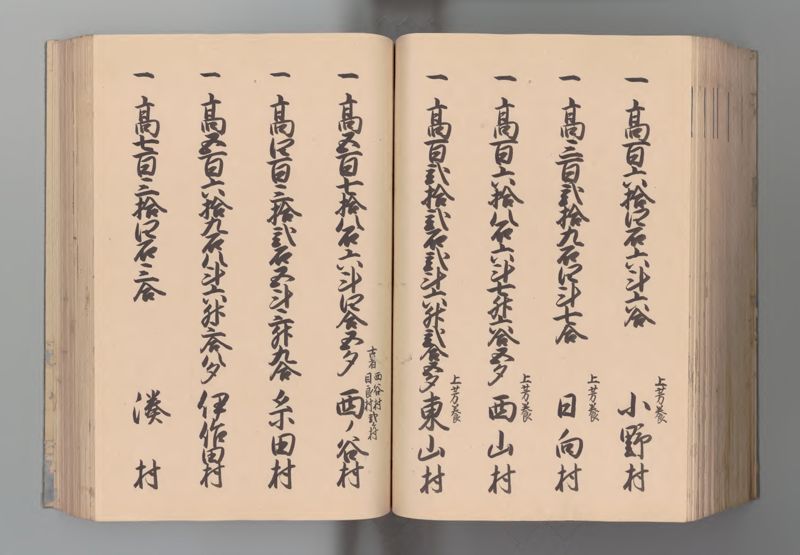 一高百六拾四石六斗六合 上芳養 小野村
一高三百弐拾九石四斗七合 上芳養 日向村
一高百六拾八石六斗七升六合五夕 上芳養 西山村
一高百弐拾弐石弐斗六升弐合五夕 上芳養 東山村
一高五百七拾八石六斗四合五夕 古者西谷村目良村弐ヶ村 西ノ谷村
一高四百三拾弐石五斗三升九合 糸田村
一高五百六拾九石八斗六升三合八夕 伊作田村
一高七百三拾四石三合 湊村